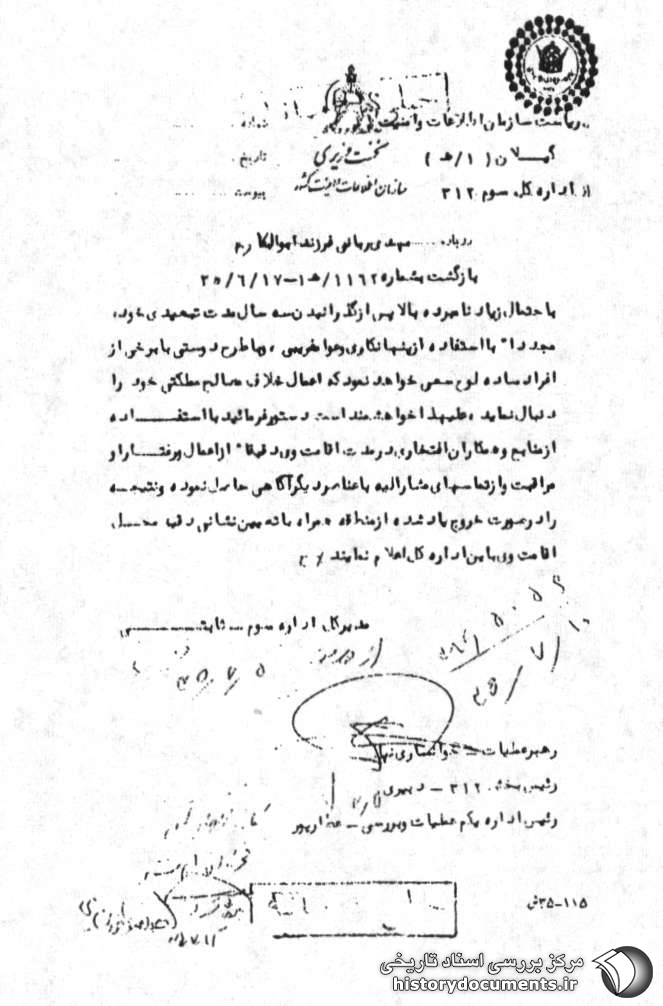 ریاست سازمان اطلاعات و امنیت
شماره
نخست وزیری
گیلان ( ۱/ه )
تاریخ
سازمان اطلاعات و امنیت کشور
از اداره کل سوم ۳۱۲
پیوست
درباره مهدی ربانی فرزند ابوالمکارم
بازگشت بشماره ۱۱۶۲/ه۱-۳۵/۶/۱۷
باحتمال زیاد نامبرده بالا پس از گذرانیدن سه سال مدت تبعیدی خود،
مجددا" با استفاده از پنهانکاری و عوامفریبی ، و با طرح دوستی با برخی از
افراد ساده لوح سعی خواهد نمود که اعمال خلاف مصالح مملکتی خود را
دنبال نماید ، علیهذا خواهشمند است دستور فرمائید با استفـــاده
از منابع و همکاران افتخاری در مدت اقامت وی دقیقا" از اعمال و رفتــار او
مراقبت و از تماسهای مشارالیه با عناصر دیگر آگاهی حاصل نموده و نتیجــه
را در صورت خروج یاد شده از منطقه همراه با تعیین نشانی دقیق محــل
اقامت وی باین اداره کل اعلام نمایند
مدیرکل اداره سوم – ثابتــــی
۳۵/۷/۵
۳۵/۷/۱۰
رهبر عملیات – خوانساری نیا
رئیس بخش ۳۱۲ – دبیری
رئیس اداره یکم عملیات و بررسی – عطارپور
۳۵-۱۱۵ش
مرکز بررسی اسناد تاریخی
historydocuments.ir